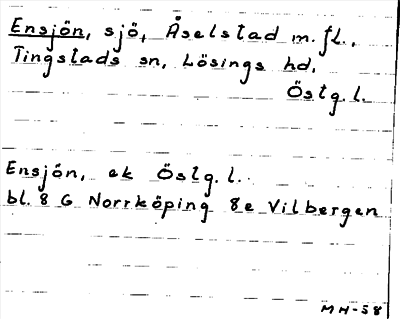 Ensjön, sjö, Åselstad m.fl.,
Tingstads sn, Lösings hd,
Östg.l.
Ensjön, ek Östg.l.
bl. 8 G Norrköping 8e Vilbergen
MH-58